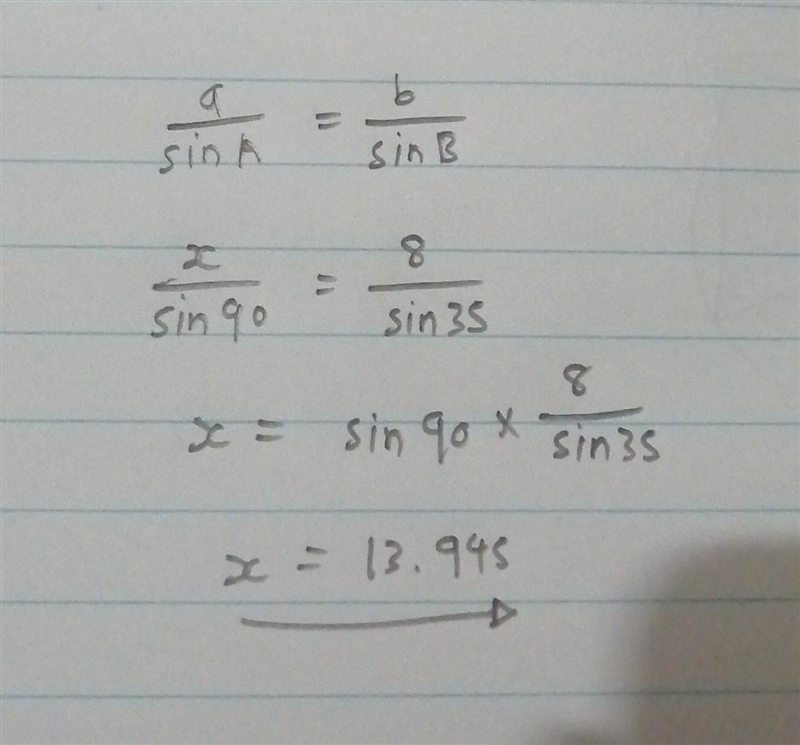 a/sin A = b/sin B
x/sin 90 = 8/sin 35
x = sin 90 × 8/sin 35
x = 13.945